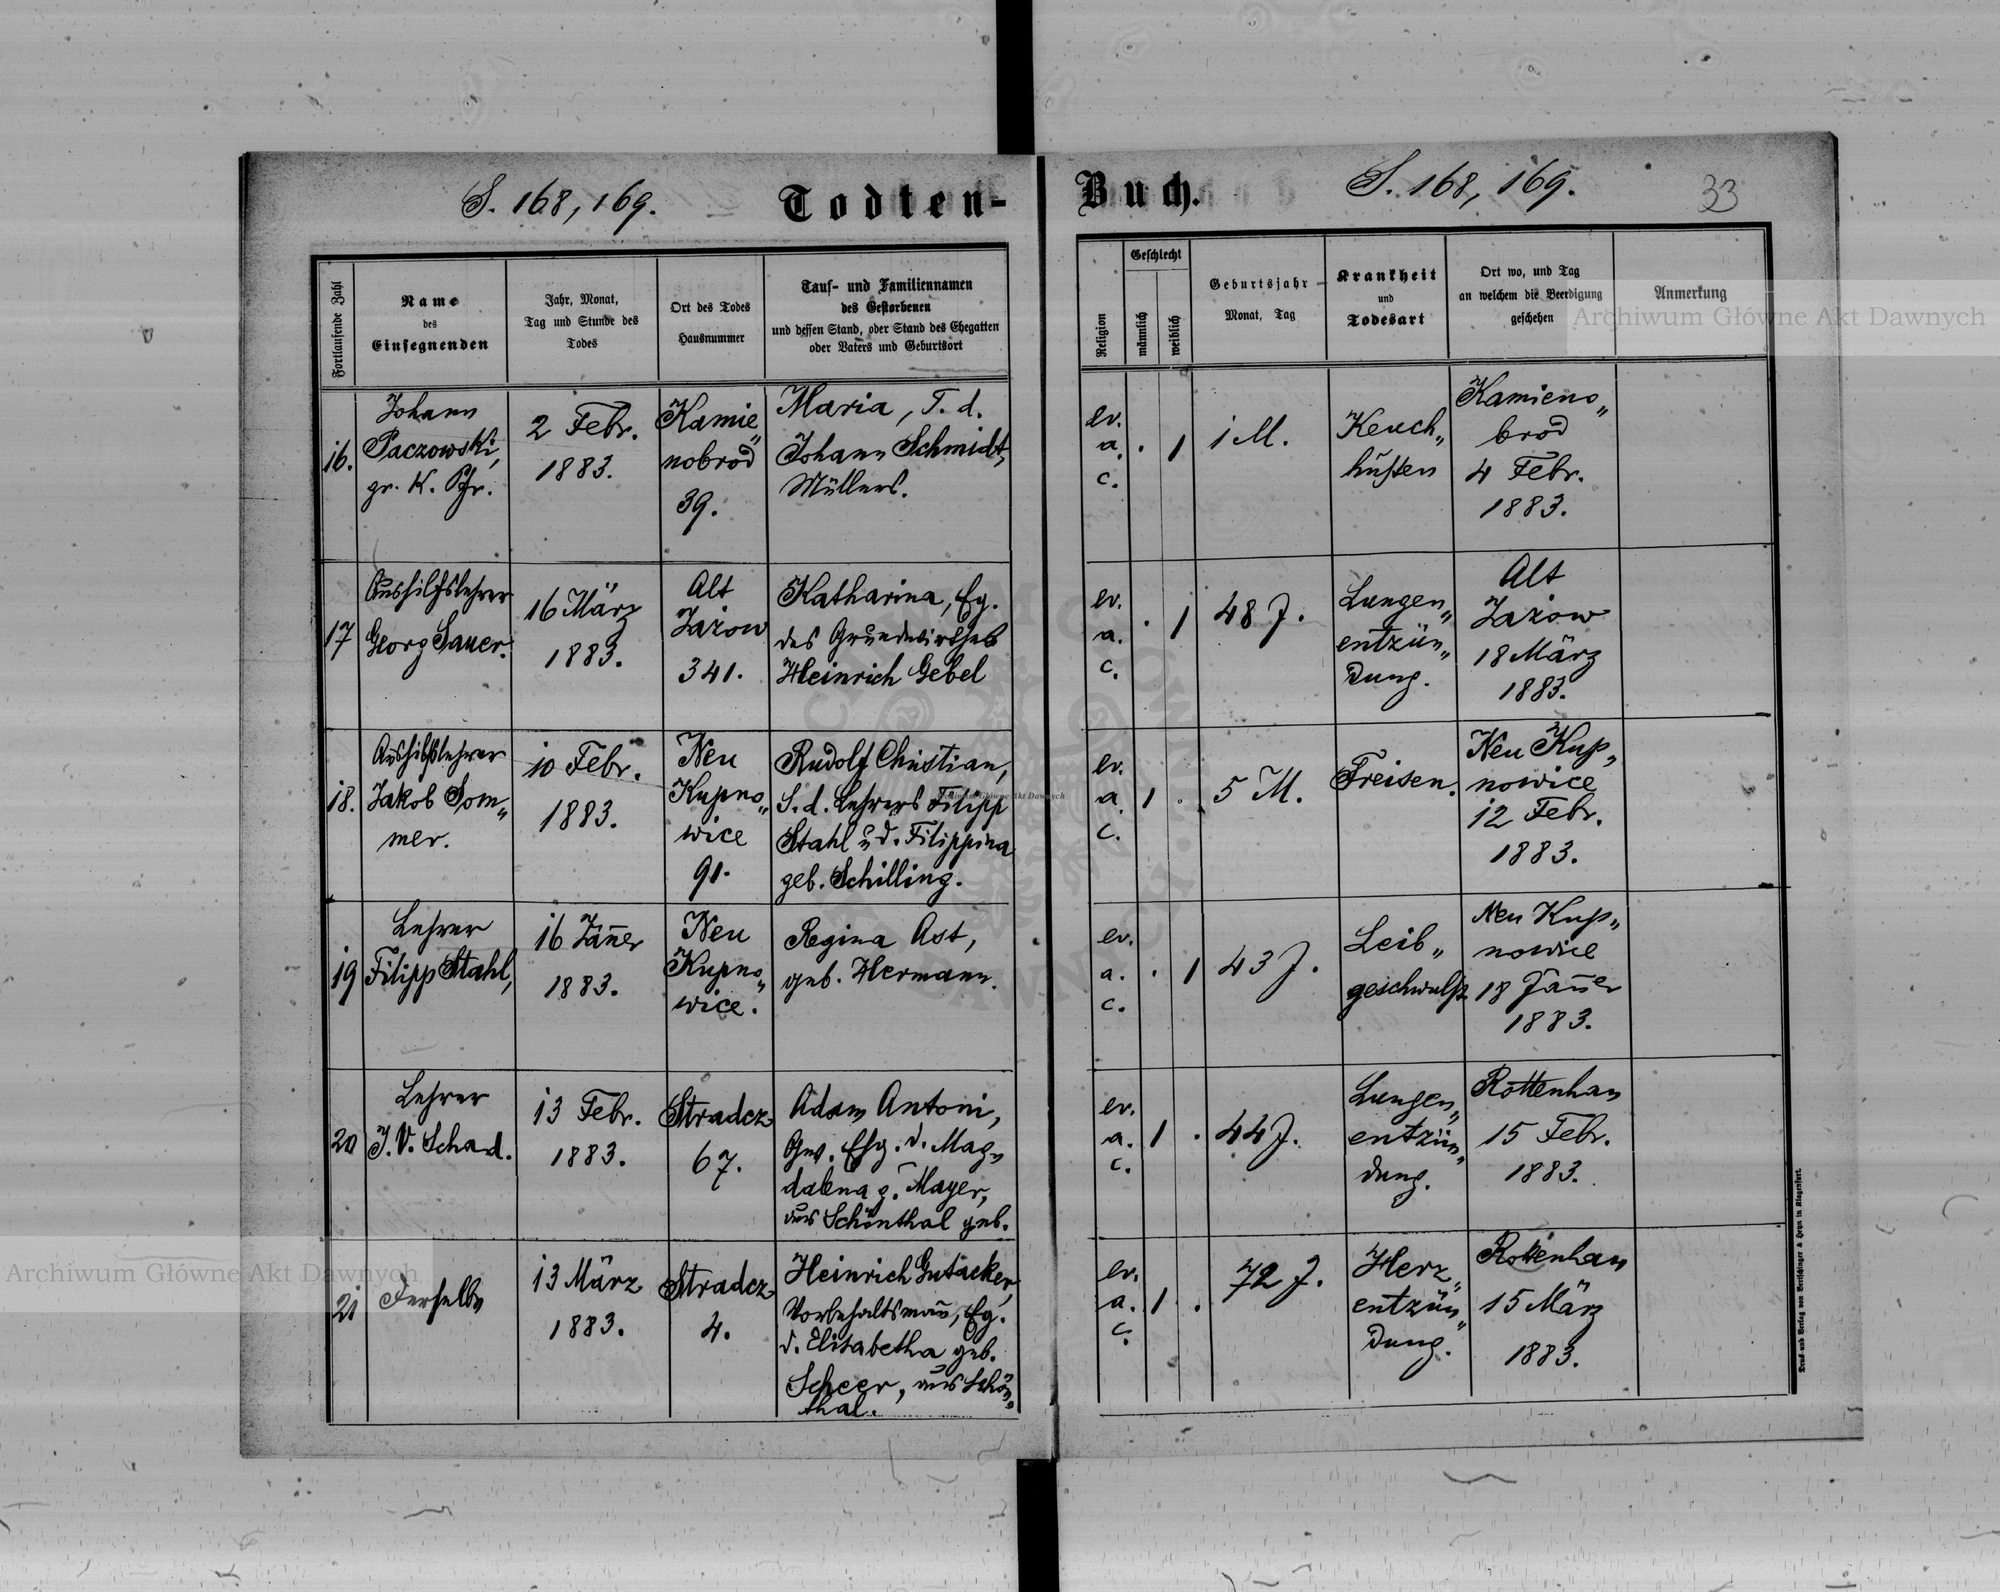 S. 168, 169.
Todten-
Buch.
S. 168, 169.
33
Fortlaufende Zahl
Name
des
Einsegnenden
Jahr, Monat,
Tag und Stunde des
Todes
Ort des Todes
Hausnummer
Tauf- und Familiennamen
des Gestorbenen
und dessen Stand, oder Stand des Ehegatten
oder Vaters und Geburtsort
Religion
Geschlecht
männlich
weiblich
Geburtsjahr
Monat, Tag
Krankheit
und
Todesart
Ort wo, und Tag
an welchem die Beerdigung
geschehen
Anmerkung
16.
Johann
Paczowski,
gr. K. Pfr.
2 Febr.
1883.
Kamie„
nobrod
39.
Maria, T. d.
Johann Schmidt,
Müllers.
ev.
a.
c.
. 1
1 M.
Keuch„
husten
Kamieno„
brod
4 Febr.
1883.
17
Aushilfslehrer
Georg Sauer.
16 März
1883.
Alt
Jażow
341.
Katharina, Eg.
des Grundwirthes
Heinrich Gebel
ev.
a.
c.
. 1
48 J.
Lungen„
entzün„
dung.
Alt
Jażow
18 März
1883.
18.
Aushilfslehrer
Jakob Som„
mer.
10 Febr.
1883.
Neu
Kupno„
wice
91.
Rudolf Christian,
S. d. Lehrers Filipp
Stahl u. d. Filippina
geb. Schilling.
ev.
a.
c.
1 .
5 M.
Freisen.
Neu Kup„
nowice
12 Febr.
1883.
19
Lehrer
Filipp Stahl,
16 Jäner
1883.
Neu
Kupno„
wice.
Regina Ast,
geb. Hermann.
ev.
a.
c.
. 1
43 J.
Leib„
geschwulst
Neu Kup„
nowice
18 Jäner
1883.
20
Lehrer
J. V. Schad.
13 Febr.
1883.
Stradcz
67.
Adam Antoni,
Gew. Ehg. d. Mag„
dalena g. Mayer,
aus Schönthal geb.
ev.
a.
c.
1 .
44 J.
Lungen„
entzün„
dung.
Rottenhan
15 Febr.
1883.
21
Derselbe
13 März
1883.
Stradcz
4.
Heinrich Gutacker,
Vorbehaltsmañ, Eg.
d. Elisabetha geb.
Scheer, aus Schön„
thal.
ev.
a.
c.
1 .
72 J.
Herz„
entzün„
dung.
Rottenhan
15 März
1883.
Druck und Verlag von Bertschinger & Heyn in Klagenfurt.
Archiwum Główne Akt Dawnych
Archiwum Główne Akt Dawnych
Archiwum Główne Akt Dawnych